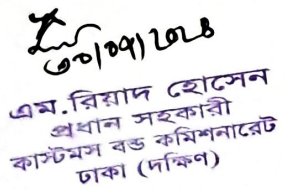 ৩০/০৭/২০২৪
এম. রিয়াদ হোসেন
প্রধান সহকারী
কাস্টমস বন্ড কমিশনারেট
ঢাকা (দক্ষিণ)